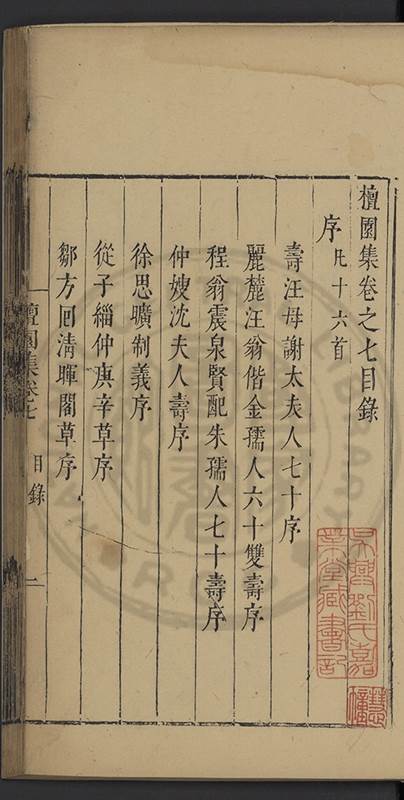 檀園集卷之七目錄
序凡十六首
壽汪母謝太夫人七十序
麗麓汪翁偕金孺人六十雙壽序
程翁震泉賢配朱孺人七十壽序
仲嫂沈夫人壽序
徐思曠制義序
從子緇仲庚辛草序
鄒方回清暉閣草序
檀園集卷七 目錄 一
吳興劉氏嘉業堂藏書記